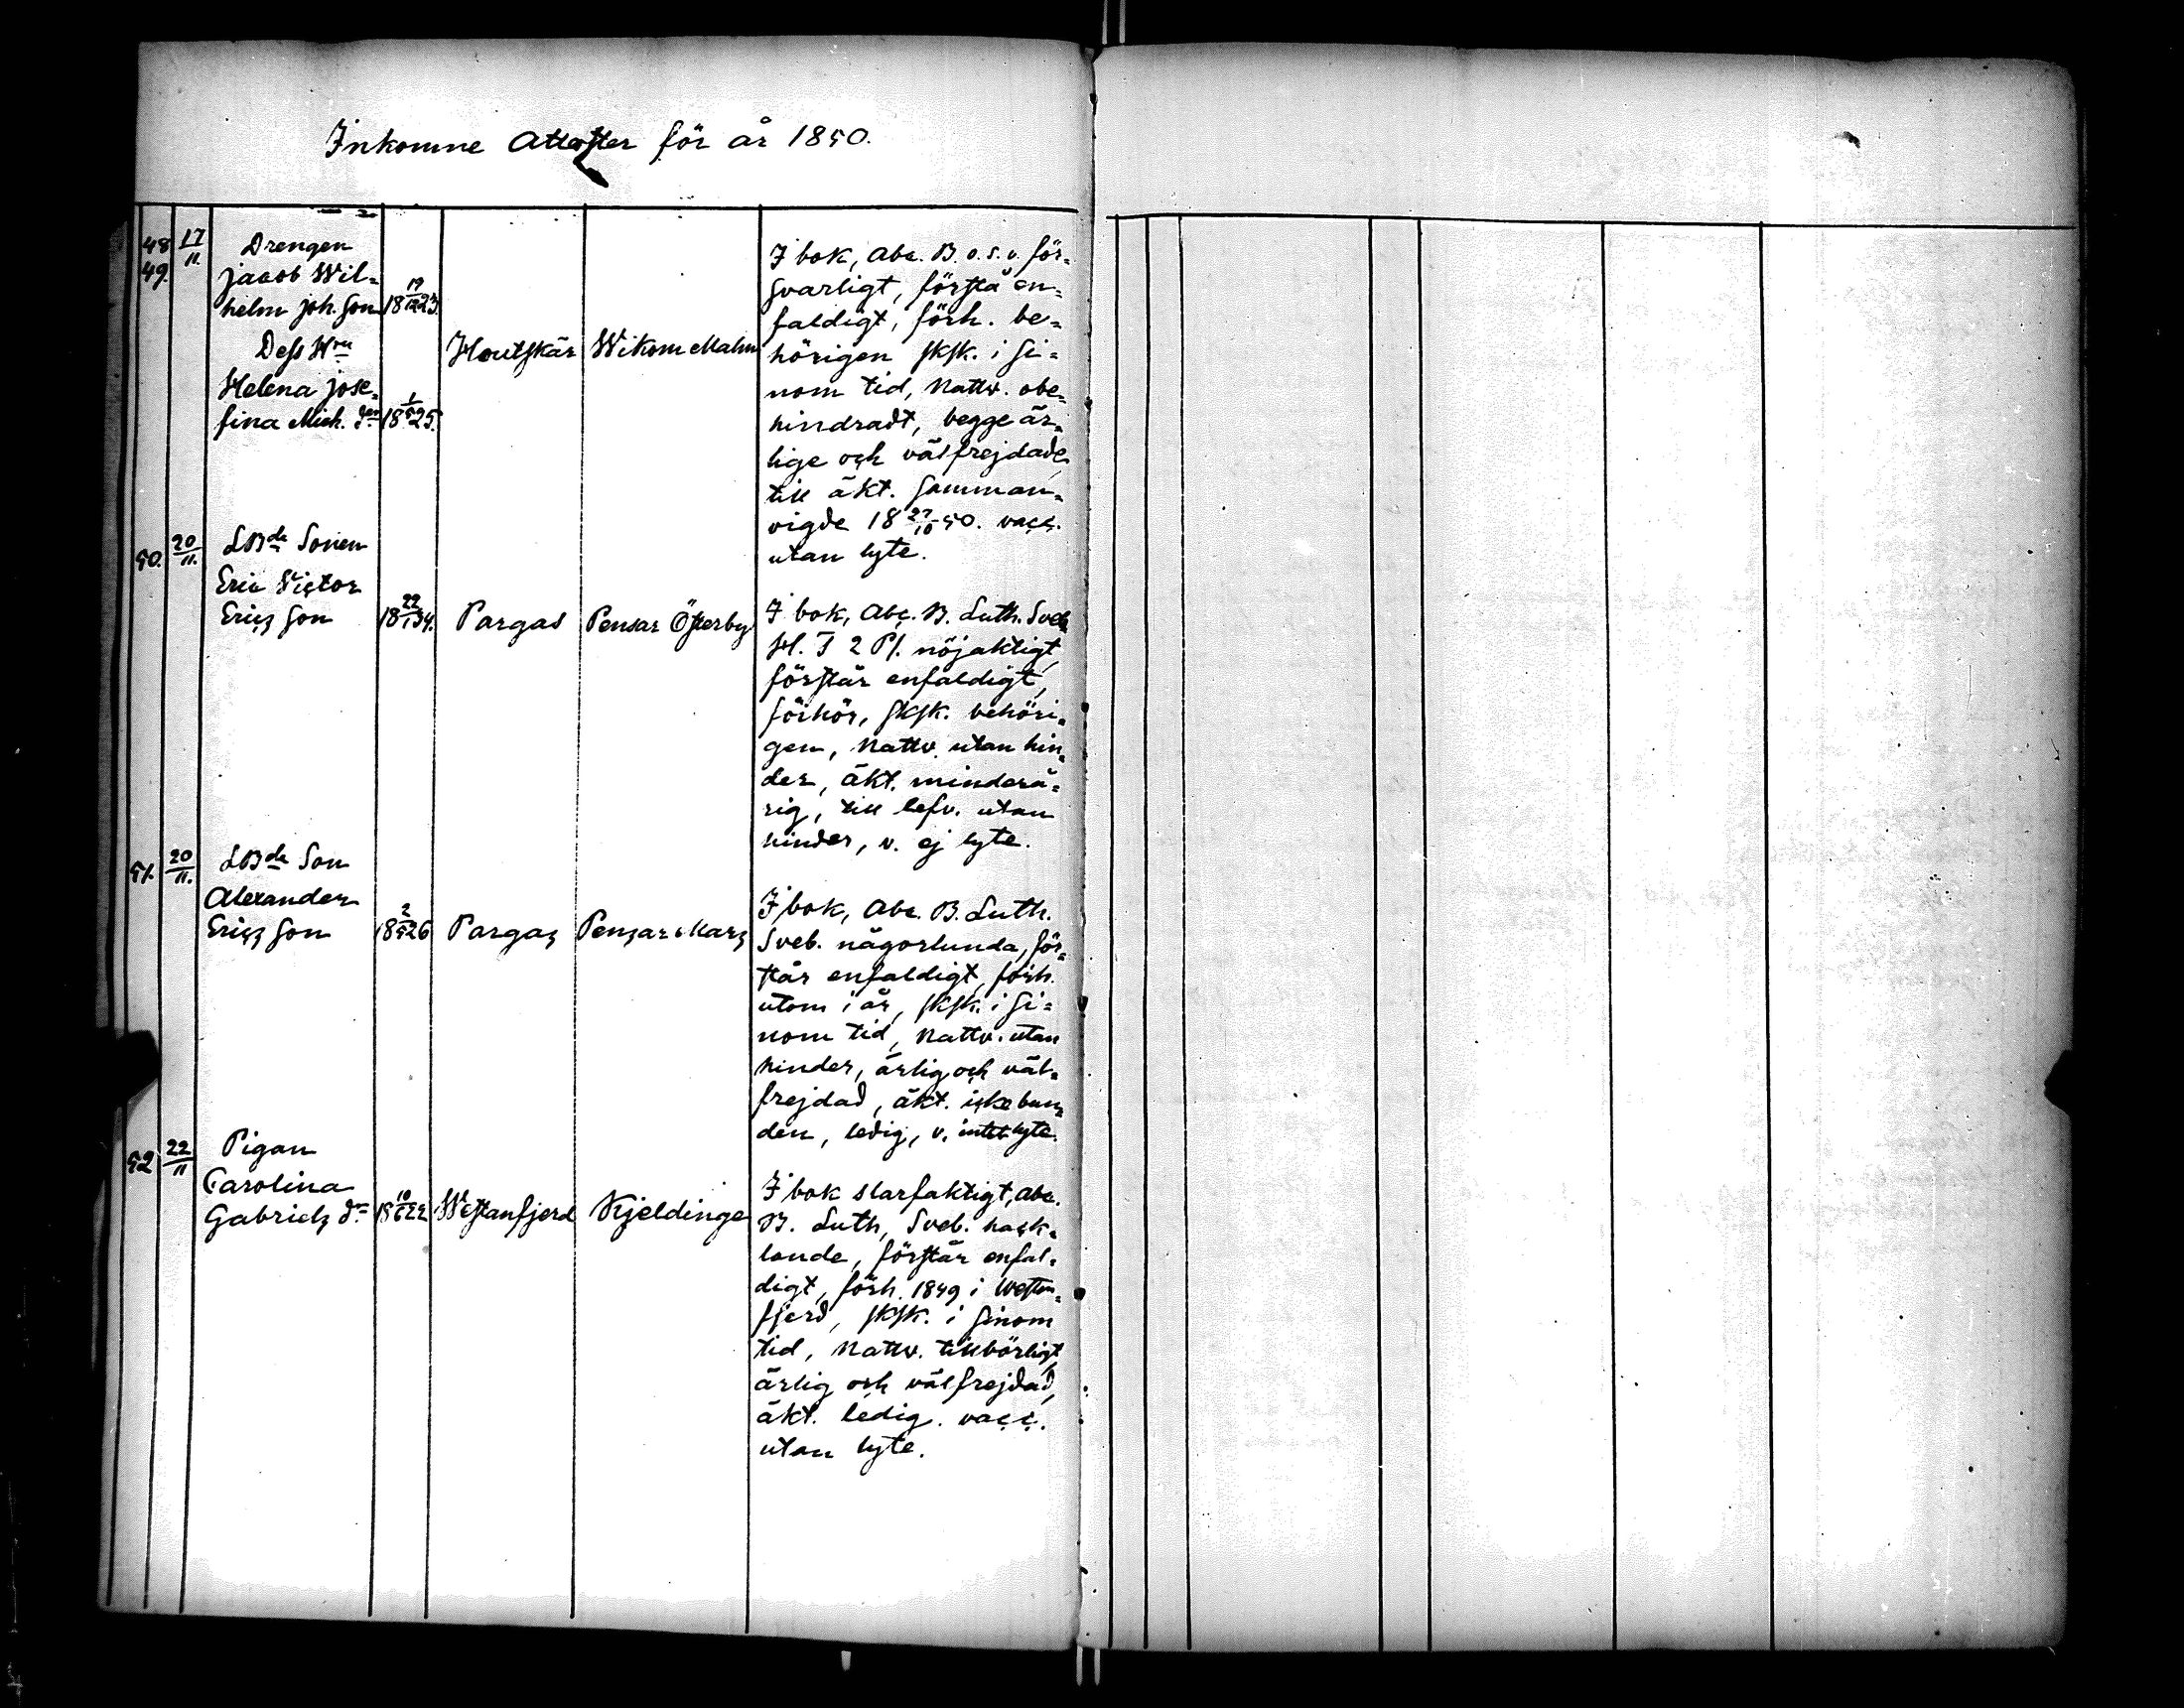 Inkomne Attester för år 1850.
48 17/11. Drengen
49. Jacob Wil-
helm Joh. Son 18 19/12 23.
Dess Hru
Helena Jose-
fina Mich. dr 18 1/5 25.
Houtskär Wikom Malm
I bok, Abc. B. o. s. v. för-
svarligt, förstå en-
faldigt, förh. be-
hörigen sksk. i si-
nom tid, Nattv. obe-
hindradt, begge är-
lige och välfrejdade,
till äkt. samman-
vigde 18 27/10 50. vacc.
utan lyte.
50. 20/11. LBde Sonen
Eric Victor
Erics Son 18 22/1 34. Pargas Pensar Österby
I bok, Abc. B. Luth. Sveb
H. T 2 Pl. nöjaktigt,
förstår enfaldigt,
förhör, sksk. behöri-
gen, Nattv. utan hin-
der, äkt. minderå-
rig, till lefv. utan
hinder, v. ej lyte.
51. 20/11. LBde Son
Alexander
Erics Son 18 2/5 26 Pargas Pensar Mars
I bok, Abc. B. Luth.
Sveb. någorlunda, för-
står enfaldigt, förh.
utom i år, sksk. i si-
nom tid, Nattv. utan
hinder, ärlig och väl-
frejdad, äkt. icke bun-
den, ledig, v. intet lyte.
52 22/11 Pigan
Carolina
Gabriels dr 18 10/6 22 Westanfjerd Kjeldinge
I bok slarfaktigt, Abc.
B. Luth, Sveb. hack-
lande, förstår enfal-
digt, förh. 1849 i Westan-
fjerd, sksk. i sinom
tid, Nattv. tillbörligt,
ärlig och välfrejdad,
äkt. ledig. vacc.
utan lyte.